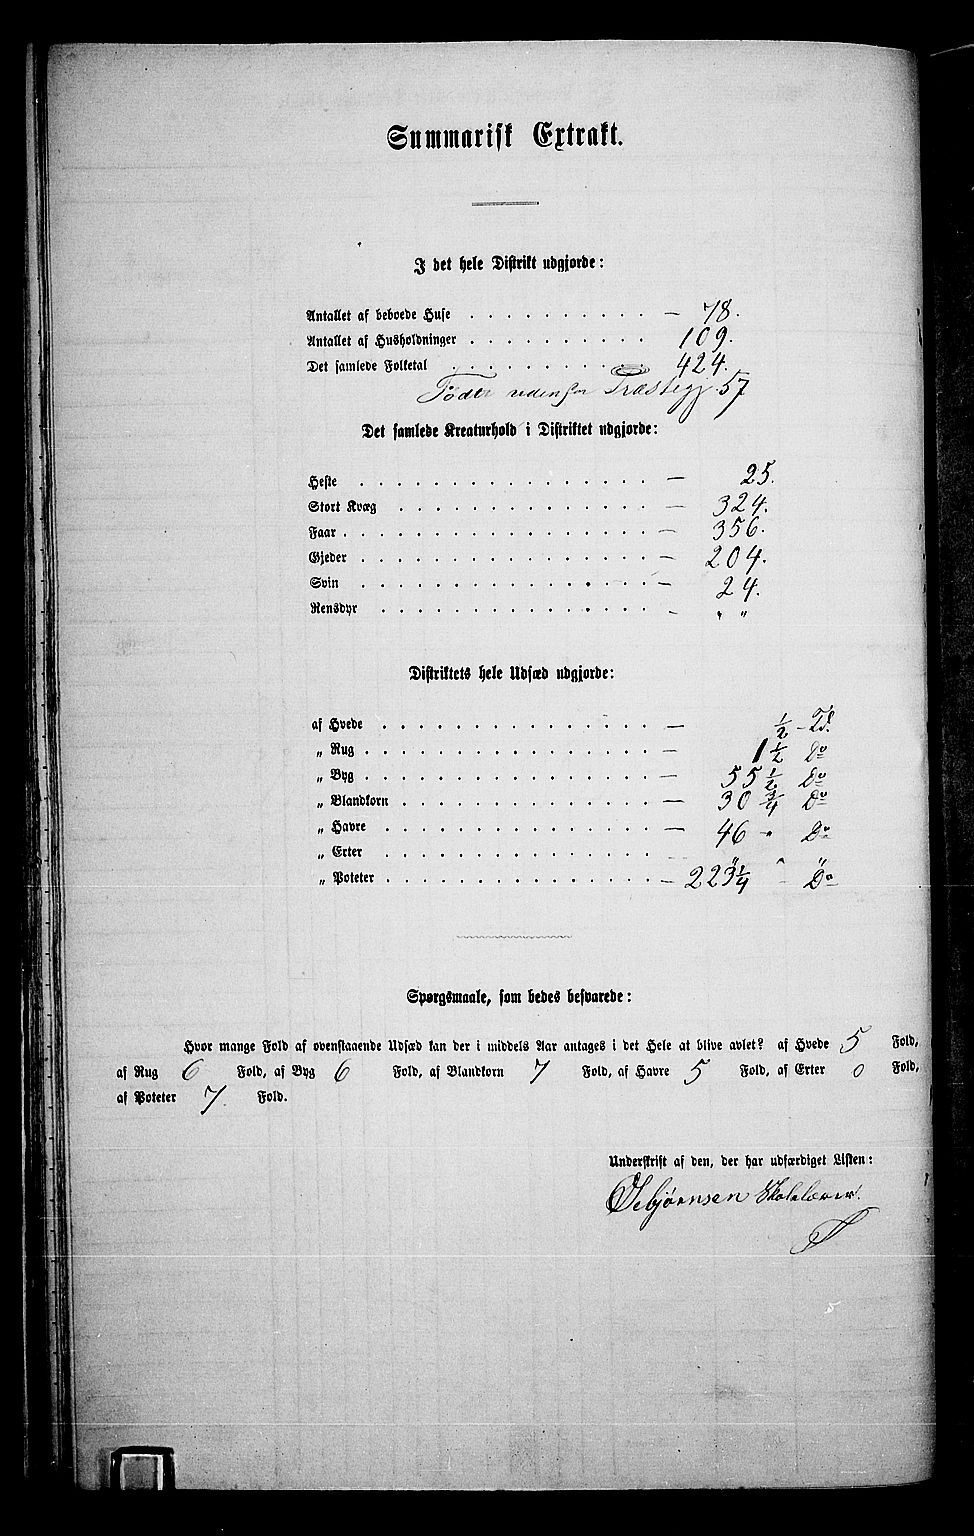 Summarisk Extrakt.
I det hele Distrikt udgjorde:
Antallet af beboede Huse . . . . . . . . . . . — 78.
Antallet af Husholdninger . . . . . . . . . . . 109.
Det samlede Folketal . . . . . . . . . . . 424.
Føder udenfor Præstegj. 57
Det samlede Kreaturhold i Distriktet udgjorde:
Heste . . . . . . . . . . . . . . . . — 25.
Stort Kvæg . . . . . . . . . . . . . . — 324.
Faar . . . . . . . . . . . . . . . . — 356.
Gjeder . . . . . . . . . . . . . . . . — 204.
Svin . . . . . . . . . . . . . . . . — 24.
Rensdyr . . . . . . . . . . . . . . . — " "
Distriktets hele Udsæd udgjorde:
af Hvede . . . . . . . . . . . . . . — ½ - Td.
„ Rug . . . . . . . . . . . . . . . — 1 ½ Do
„ Byg . . . . . . . . . . . . . . . — 55 ½ Do
„ Blandkorn . . . . . . . . . . . . . — 30 ¾ Do
„ Havre . . . . . . . . . . . . . . — 46 - " Do
„ Erter . . . . . . . . . . . . . . — " " "
„ Poteter . . . . . . . . . . . . . . — 223¼ - Do
Spørgsmaale, som bedes besvarede:
Hvor mange Fold af ovenstaaende Udsæd kan der i middels Aar antages i det Hele at blive avlet? af Hvede 5 Fold,
af Rug 6 Fold, af Byg 6 Fold, af Blandkorn 7 Fold, af Havre 5 Fold, af Erter 0 Fold,
af Poteter 7. Fold.
Underskrift af den, der har udfærdiget Listen:
Skolelærer.